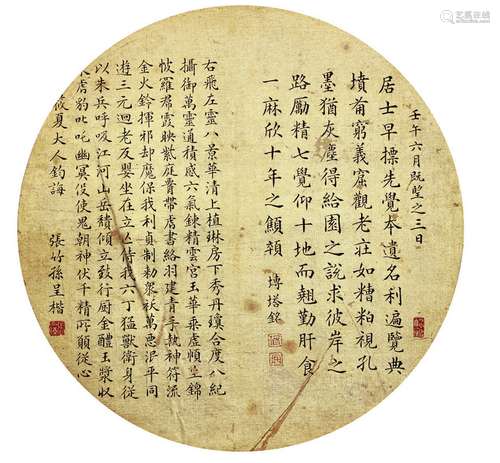 壬午六月既望之三日
居士早標先覺本遺名利遍覽典
墳窮義窟觀老莊如糟粕視孔
墨猶灰塵得給園之說求彼岸之
路勵精七覺仰十地而翹勤肝食
一麻欣十年之顦顇
塼塔銘
右飛左靈八景華清上植琳房下秀丹瓊合度八紀
攝御萬靈通積感六氣鍊精雲宮玉華乘虛順皇錦
帔羅帬映紫庭帶虎書絡羽建青手執神符流
金火鈴揮邪却魔保我利貞制勅衆祅萬惡泯平同
遊三元迴老反嬰坐在立亡侍我六丁猛獸衛身從
以朱兵呼吸江河山岳頹傾立致行厨金醴玉漿收
束虎豹叱吒幽冥役使鬼朝神伏千精所願從心
筱夏大人鈞誨 張竹孫呈楷